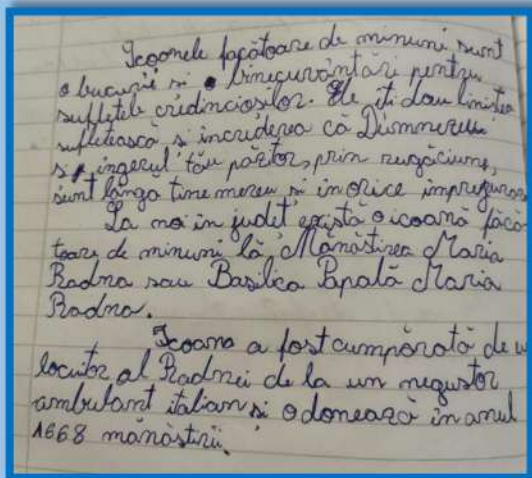 Icoanele făcătoare de minuni sunt
o bucurie si o binecuvântări pentru
sufletele credinciosilor. Ele iti dau linistea
sufletească si increderea că Dumnezeu
si ingerul tău păzitor, prin rugăciune,
sunt lângă tine mereu si in orice impreguror
La noi in judet există o icoană făcă
toare de minuni la Mănăstirea Maria
Radna sau Basilica Papală Maria
Radna.
Icoana a fost cumpărată de u
locuitor al Radnei de la un negustor
ambulant italian si o donează in anul
1668 mănăstirii.